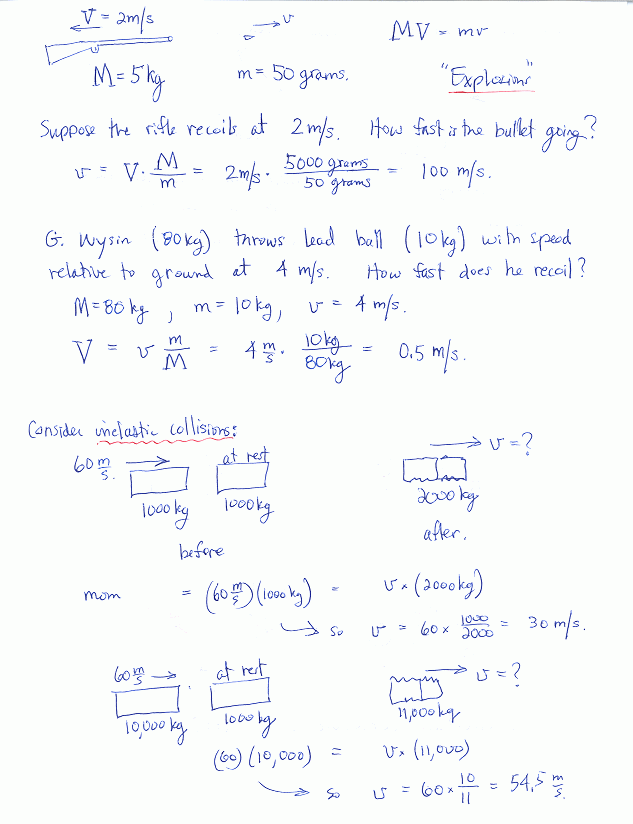 V = 2m/s → v MV = mv
M = 5 kg m = 50 grams. "Explosions"
Suppose the rifle recoils at 2 m/s. How fast is the bullet going?
v = V · M/m = 2m/s · 5000 grams/50 grams = 100 m/s.
G. Wysin (80kg) throws lead ball (10kg) with speed
relative to ground at 4 m/s. How fast does he recoil?
M = 80 kg, m = 10 kg, v = 4 m/s.
V = v m/M = 4 m/s · 10kg/80kg = 0.5 m/s.
Consider inelastic collisions:
60 m/s. → at rest → v = ?
1000 kg 1000 kg 2000 kg
before after.
mom = (60 m/s)(1000 kg) = v × (2000 kg)
→ so v = 60 × 1000/2000 = 30 m/s.
60 m/s → at rest → v = ?
10,000 kg 1000 kg 11,000 kg
(60)(10,000) = v × (11,000)
→ so v = 60 × 10/11 = 54.5 m/s.